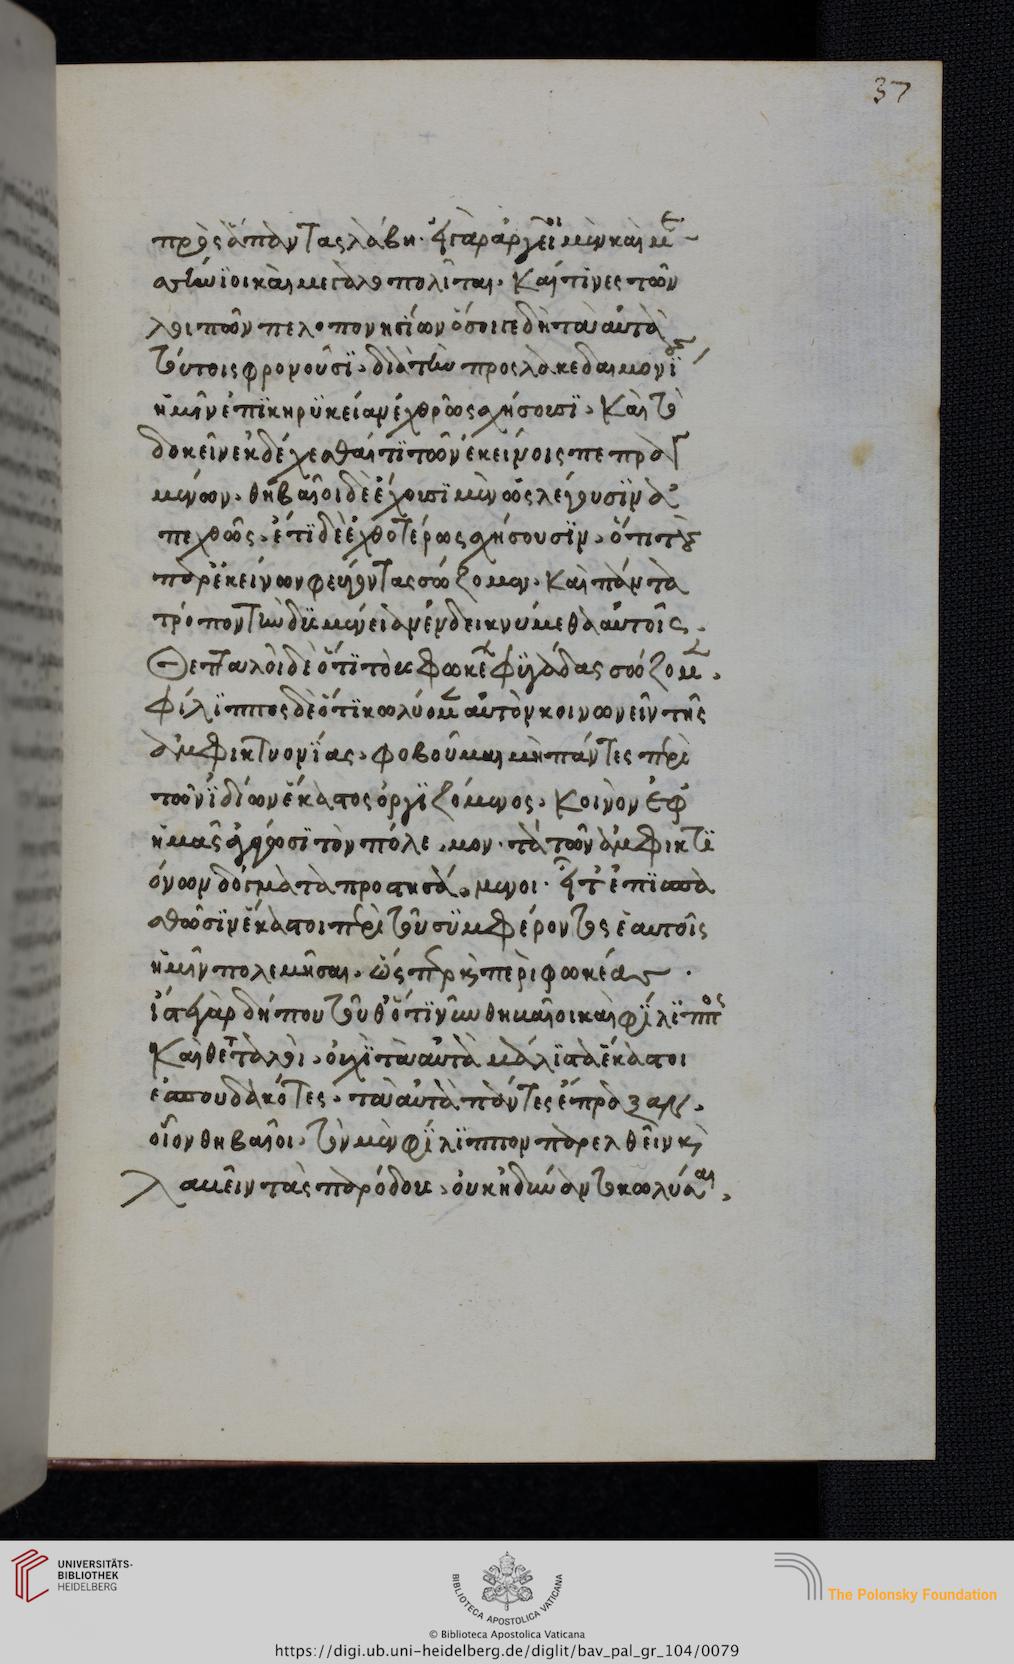 37
πρὸς ἅπαντας λάβη. εἰ γὰρ ἀργεῖοι μὲν καὶ μεσ
σήνιοι καὶ μεγαλοπολῖται. Καί τινες τῶν
λοιπῶν πελοποννησίων ὅσοι γε δὴ ταὐτὰ
τούτοις φρονοῦσι. διὰ τὴν πρὸς λακεδαιμονίους
ἡμῖν ἐπικηρυκείαν ἐχθρῶς σχήσουσι. Καὶ τὸ
δοκεῖν ἐκδέχεσθαί τι τῶν ἐκείνοις πεπραγ
μένων. θηβαῖοι δὲ ἔχουσι μὲν ὡς λέγουσιν ἀ
πεχθῶς. ἔτι δὲ ἐχθροτέρως σχήσουσιν. ὅτι τοὺς
παρ' ἐκείνων φεύγοντας σώζομεν. Καὶ πάντα
τρόπον τὴν δυσμένειαν ἐνδεικνύμεθα αὐτοῖς.
Θετταλοὶ δὲ ὅτι τοὺς φωκέων φυγάδας σώζομεν.
Φίλιππος δὲ ὅτι κωλύομεν αὐτὸν κοινωνεῖν τῆς
ἀμφικτυονίας. φοβοῦμαι μὴ πάντες περὶ
τῶν ἰδίων ἕκαστος ὀργιζόμενος. Κοινὸν ἐφ'
ἡμᾶς ἀγάγωσι τὸν πόλεμον. τὰ τῶν ἀμφικτυ
όνων δόγματα προστησάμενοι. εἶτ' ἐπισπα
σθῶσιν ἕκαστοι περὶ τοῦ συμφέροντος ἑαυτοῖς
ἡμῖν πολεμῆσαι. ὥσπερ καὶ περὶ φωκέας.
ἴστε γὰρ δήπου τοῦθ' ὅτι νῦν θηβαῖοι καὶ φίλιππος
Καὶ θετταλοὶ. οὐχὶ ταὐτὰ μάλιστα ἕκαστοι
ἐσπουδακότες. ταὐτὰ πάντες ἔπραξαν.
οἷον θηβαῖοι. τὸν μὲν φίλιππον παρελθεῖν καὶ
λαβεῖν τὰς παρόδους. οὐκ ἠδύναντο κωλῦσαι.
UNIVERSITÄTS-
BIBLIOTHEK
HEIDELBERG
BIBLIOTECA APOSTOLICA VATICANA
The Polonsky Foundation
© Biblioteca Apostolica Vaticana
https://digi.ub.uni-heidelberg.de/diglit/bav_pal_gr_104/0079